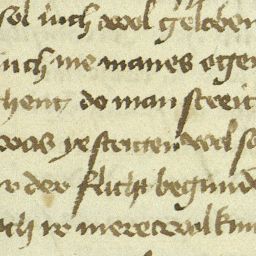 sol iuch wol gelouben
iuch me manes ogen
hent do man streit
was gestritten wol so
der flucht begund
ich ir mere wol kun